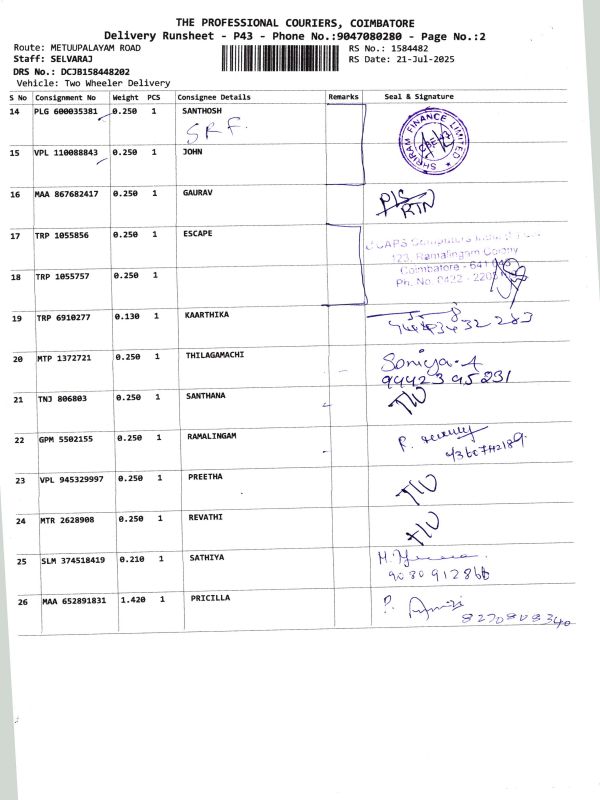 THE PROFESSIONAL COURIERS, COIMBATORE
Delivery Runsheet - P43 - Phone No.:9047080280 - Page No.:2
Route: METUUPALAYAM ROAD RS No.: 1584482
Staff: SELVARAJ RS Date: 21-Jul-2025
DRS No.: DCJB158448202
Vehicle: Two Wheeler Delivery
S No Consignment No Weight PCS Consignee Details Remarks Seal & Signature
14 PLG 600035381 0.250 1 SANTHOSH
SRF.
SHRIRAM FINANCE LIMITED
15 VPL 110088843 0.250 1 JOHN
16 MAA 867682417 0.250 1 GAURAV
RTN
17 TRP 1055856 0.250 1 ESCAPE
123, Ramalingam Colony
Coimbatore - 641
Ph. No. 0422 -
18 TRP 1055757 0.250 1
19 TRP 6910277 0.130 1 KAARTHIKA
20 MTP 1372721 0.250 1 THILAGAMACHI
Soniya.A
94423 95231
21 TNJ 806803 0.250 1 SANTHANA
22 GPM 5502155 0.250 1 RAMALINGAM
23 VPL 945329997 0.250 1 PREETHA
24 MTR 2628908 0.250 1 REVATHI
25 SLM 374518419 0.210 1 SATHIYA
9080912866
26 MAA 652891831 1.420 1 PRICILLA
8270808340